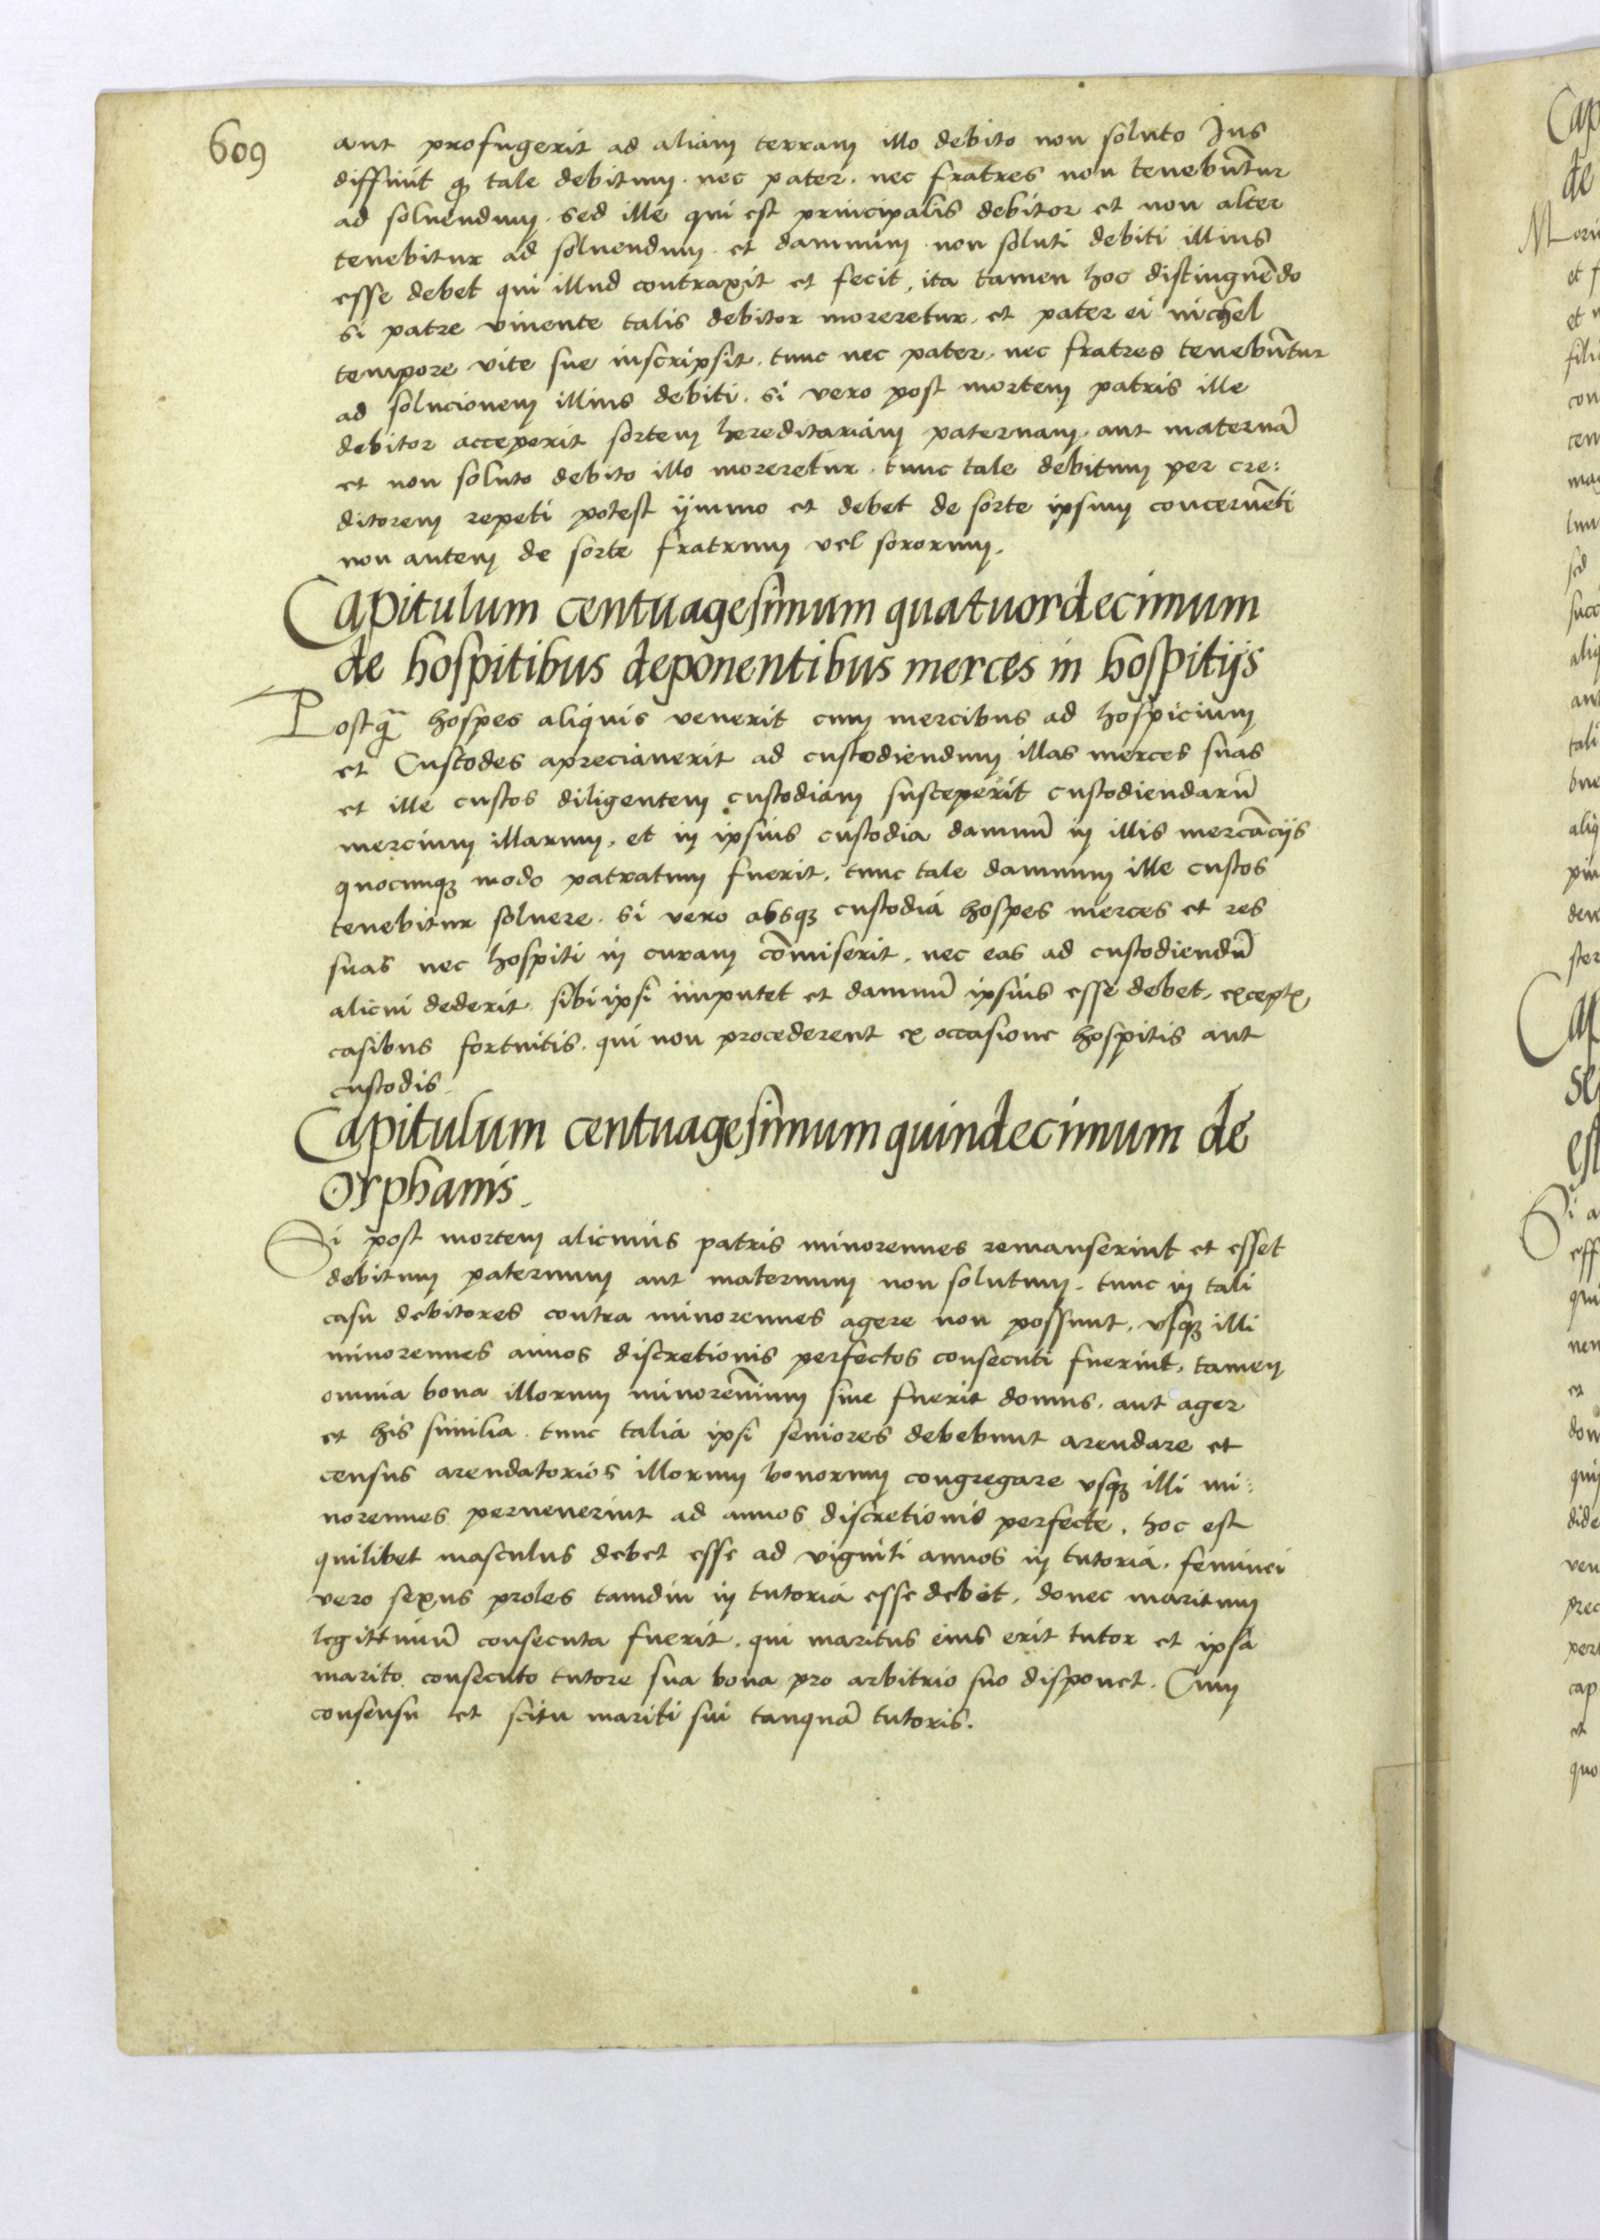 609
aut profugerit ad aliam terram illo debito non soluto Jus
diffinit q tale debitum. nec pater. nec fratres non tenebūtur
ad soluendum. sed ille qui est principalis debitor et non alter
tenebitur ad soluendum. et damnum non soluti debiti illius
esse debet qui illud contraxit et fecit, ita tamen hoc distinguēdo
si patre viuente talis debitor moreretur. et pater ei nichel
tempore vite sue inscripsit. tunc nec pater. nec fratres tenebūtur
ad solucionem illius debiti. si vero post mortem patris ille
debitor acceperit sortem hereditariam paternam. aut maternā
et non soluto debito illo moreretur. tunc tale debitum per cre:
ditorem repeti potest ymmo et debet de sorte ipsum concernēti
non autem de sorte fratrum vel sororum.
Capitulum centuagesimum quatuordecimum
de hospitibus deponentibus merces in hospitijs
Postq̄ hospes aliquis venerit cum mercibus ad hospicium
et Custodes apreciauerit ad custodiendum illas merces suas
et ille custos diligentem custodiam susceperit custodiendarū
mercium illarum. et in ipsius custodia damnū in illis mercācijs
quocunqz modo patratum fuerit. tunc tale damnum ille custos
tenebitur soluere. si vero absqz custodia hospes merces et res
suas nec hospiti in curam cōmiserit. nec eas ad custodiendū
alicui dederit. sibi ipsi imputet et damnū ipsius esse debet.
casibus fortuitis. qui non procederent ex occasione hospitis aut
custodis.
Capitulum centuagesimum quindecimum de
Orphanis.
Si post mortem alicuius patris minorennes remanserint et esset
debitum paternum aut maternum non solutum. tunc in tali
casu debitores contra minorennes agere non possunt. vsqz illi
minorennes annos discretionis perfectos consecuti fuerint. tamen
omnia bona illorum minorēnium siue fuerit domus. aut ager
et his similia. tunc talia ipsi seniores debebunt arendare et
census arendatorios illorum bonorum congregare vsqz illi mi:
norennes peruenerint ad annos discretionis perfecte. hoc est
quilibet masculus debet esse ad viginti annos in tutoria. feminei
vero sexus proles tamdiu in tutoria esse debet. donec maritum
legittimū consecuta fuerit. qui maritus eius erit tutor et ipsa
marito consecuto tutore sua bona pro arbitrio suo disponet. Cum
consensu et scitu mariti sui tanquā tutoris.